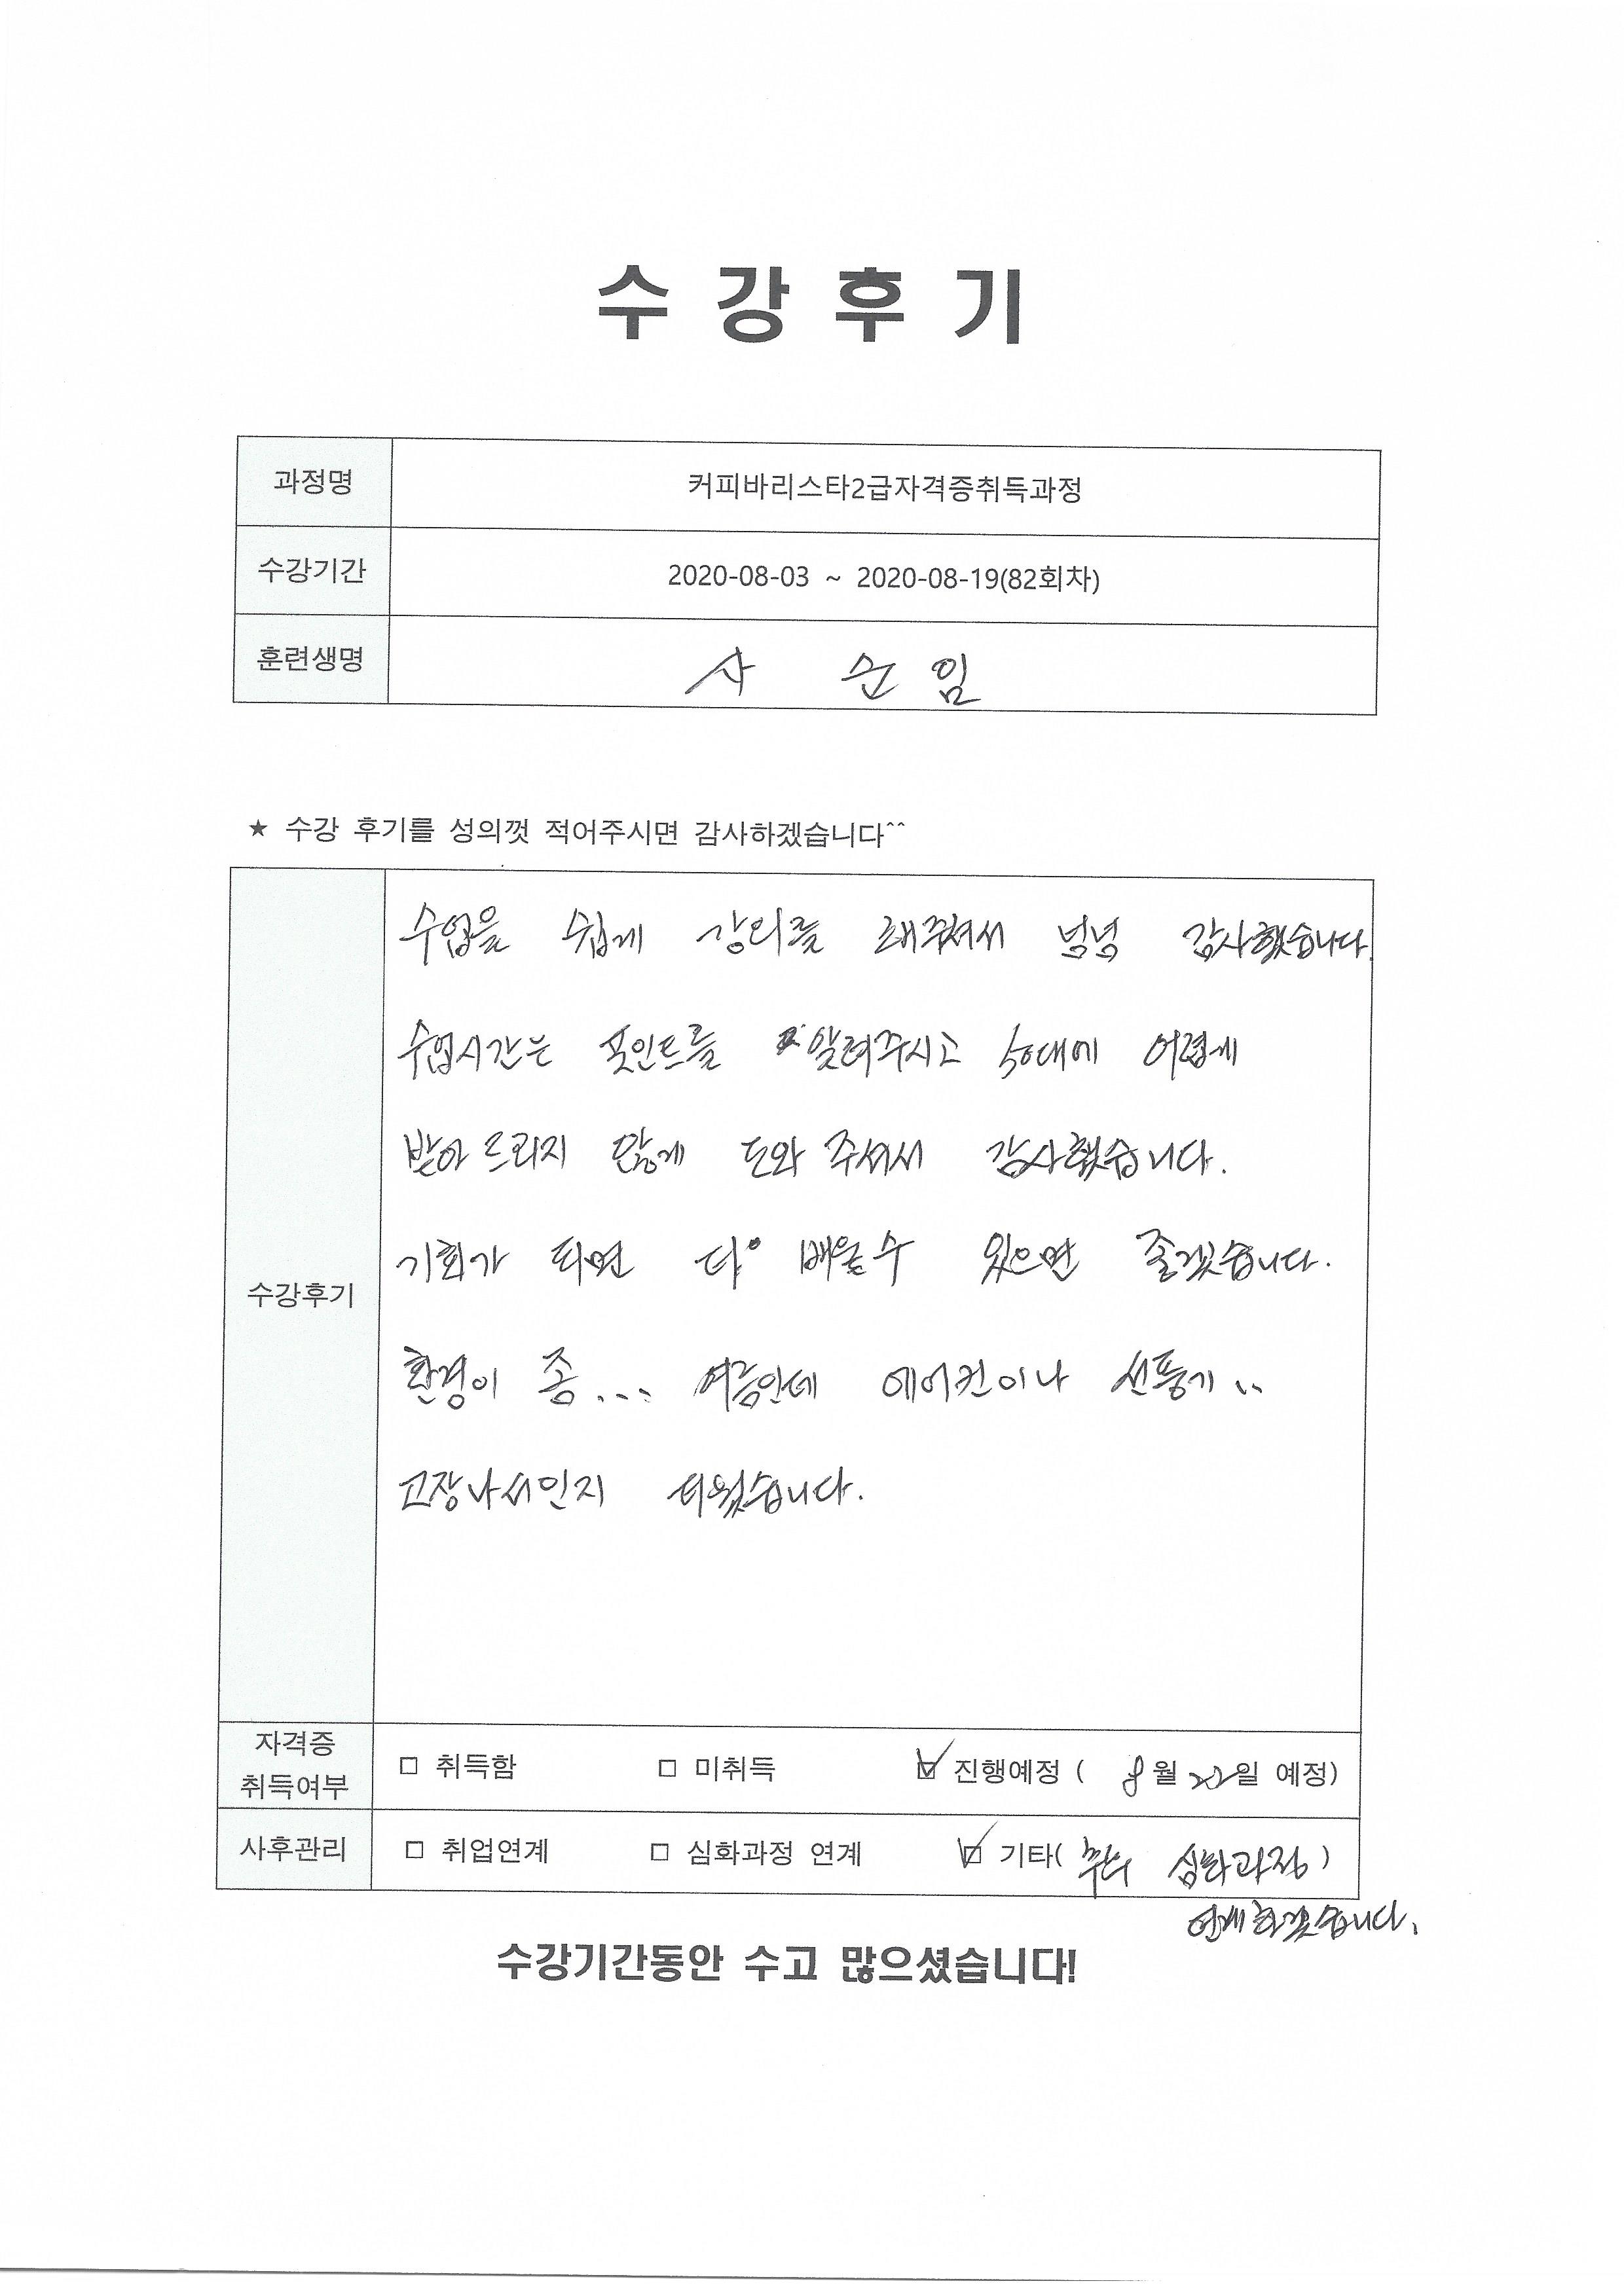 수강후기
과정명 커피바리스타2급자격증취득과정
수강기간 2020-08-03 ~ 2020-08-19(82회차)
훈련생명 사 순임
★ 수강 후기를 성의껏 적어주시면 감사하겠습니다^^
수업을 쉽게 강의를 해주셔서 넘넘 감사했습니다.
수업시간은 포인트를 알려주시고 50대에 어렵게
받아 드리지 않게 도와 주셔서 감사했습니다.
기회가 되면 더 배울수 있으면 좋겠습니다.
수강후기
환경이 좀... 여름인데 에어컨이나 선풍기..
고장나서인지 더웠습니다.
자격증
취득여부 □ 취득함 □ 미취득 ☑ 진행예정 ( 8월 22일 예정)
사후관리 □ 취업연계 □ 심화과정 연계 ☑ 기타( 심화과정 )
연계하겠습니다.
수강기간동안 수고 많으셨습니다!